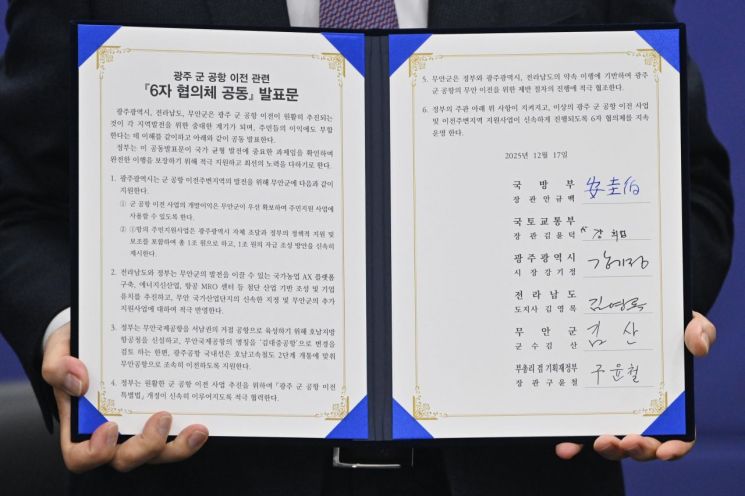 광주 군 공항 이전 관련
『6자 협의체 공동』 발표문
광주광역시, 전라남도, 무안군은 광주 군 공항 이전이 원활히 추진되는
것이 각 지역발전을 위한 중대한 계기가 되며, 주민들의 이익에도 부합
한다는 데 이해를 같이하고 아래와 같이 공동 발표한다.
정부는 이 공동발표문이 국가 균형 발전에 중요한 과제임을 확인하며
완전한 이행을 보장하기 위해 적극 지원하고 최선의 노력을 다하기로 한다.
1. 광주광역시는 군 공항 이전주변지역의 발전을 위해 무안군에 다음과 같이
지원한다.
① 군 공항 이전 사업의 개발이익은 무안군이 우선 확보하여 주민지원 사업에
사용할 수 있도록 한다.
② ①항의 주민지원사업은 광주광역시 자체 조달과 정부의 정책적 지원 및
보조를 포함하여 총 1조 원으로 하고, 1조 원의 자금 조성 방안을 신속히
제시한다.
2. 전라남도와 정부는 무안군의 발전을 이끌 수 있는 국가농업 AX 플랫폼
구축, 에너지신산업, 항공 MRO 센터 등 첨단 산업 기반 조성 및 기업
유치를 추진하고, 무안 국가산업단지의 신속한 지정 및 무안군의 추가
지원사업에 대하여 적극 반영한다.
3. 정부는 무안국제공항을 서남권의 거점 공항으로 육성하기 위해 호남지방
항공청을 신설하고, 무안국제공항의 명칭을 '김대중공항'으로 변경을
검토 하는 한편, 광주공항 국내선은 호남고속철도 2단계 개통에 맞춰
무안공항으로 조속히 이전하도록 지원한다.
4. 정부는 원활한 군 공항 이전 사업 추진을 위하여 「광주 군 공항 이전
특별법」 개정이 신속히 이루어지도록 적극 협력한다.
5. 무안군은 정부와 광주광역시, 전라남도의 약속 이행에 기반하여 광주
군 공항의 무안 이전을 위한 제반 절차의 진행에 적극 협조한다.
6. 정부의 주관 아래 위 사항이 지켜지고, 이상의 광주 군 공항 이전 사업
및 이전주변지역 지원사업이 신속하게 진행되도록 6자 협의체를 지속
운영 한다.
2025년 12월 17일
국 방 부
장 관 안 규 백 安圭伯
국 토 교 통 부
장 관 김 윤 덕
광 주 광 역 시
시 장 강 기 정 강기정
전 라 남 도
도 지 사 김 영 록 김영록
무 안 군
군 수 김 산 김 산
부총리 겸 기획재정부
장 관 구 윤 철 구윤철